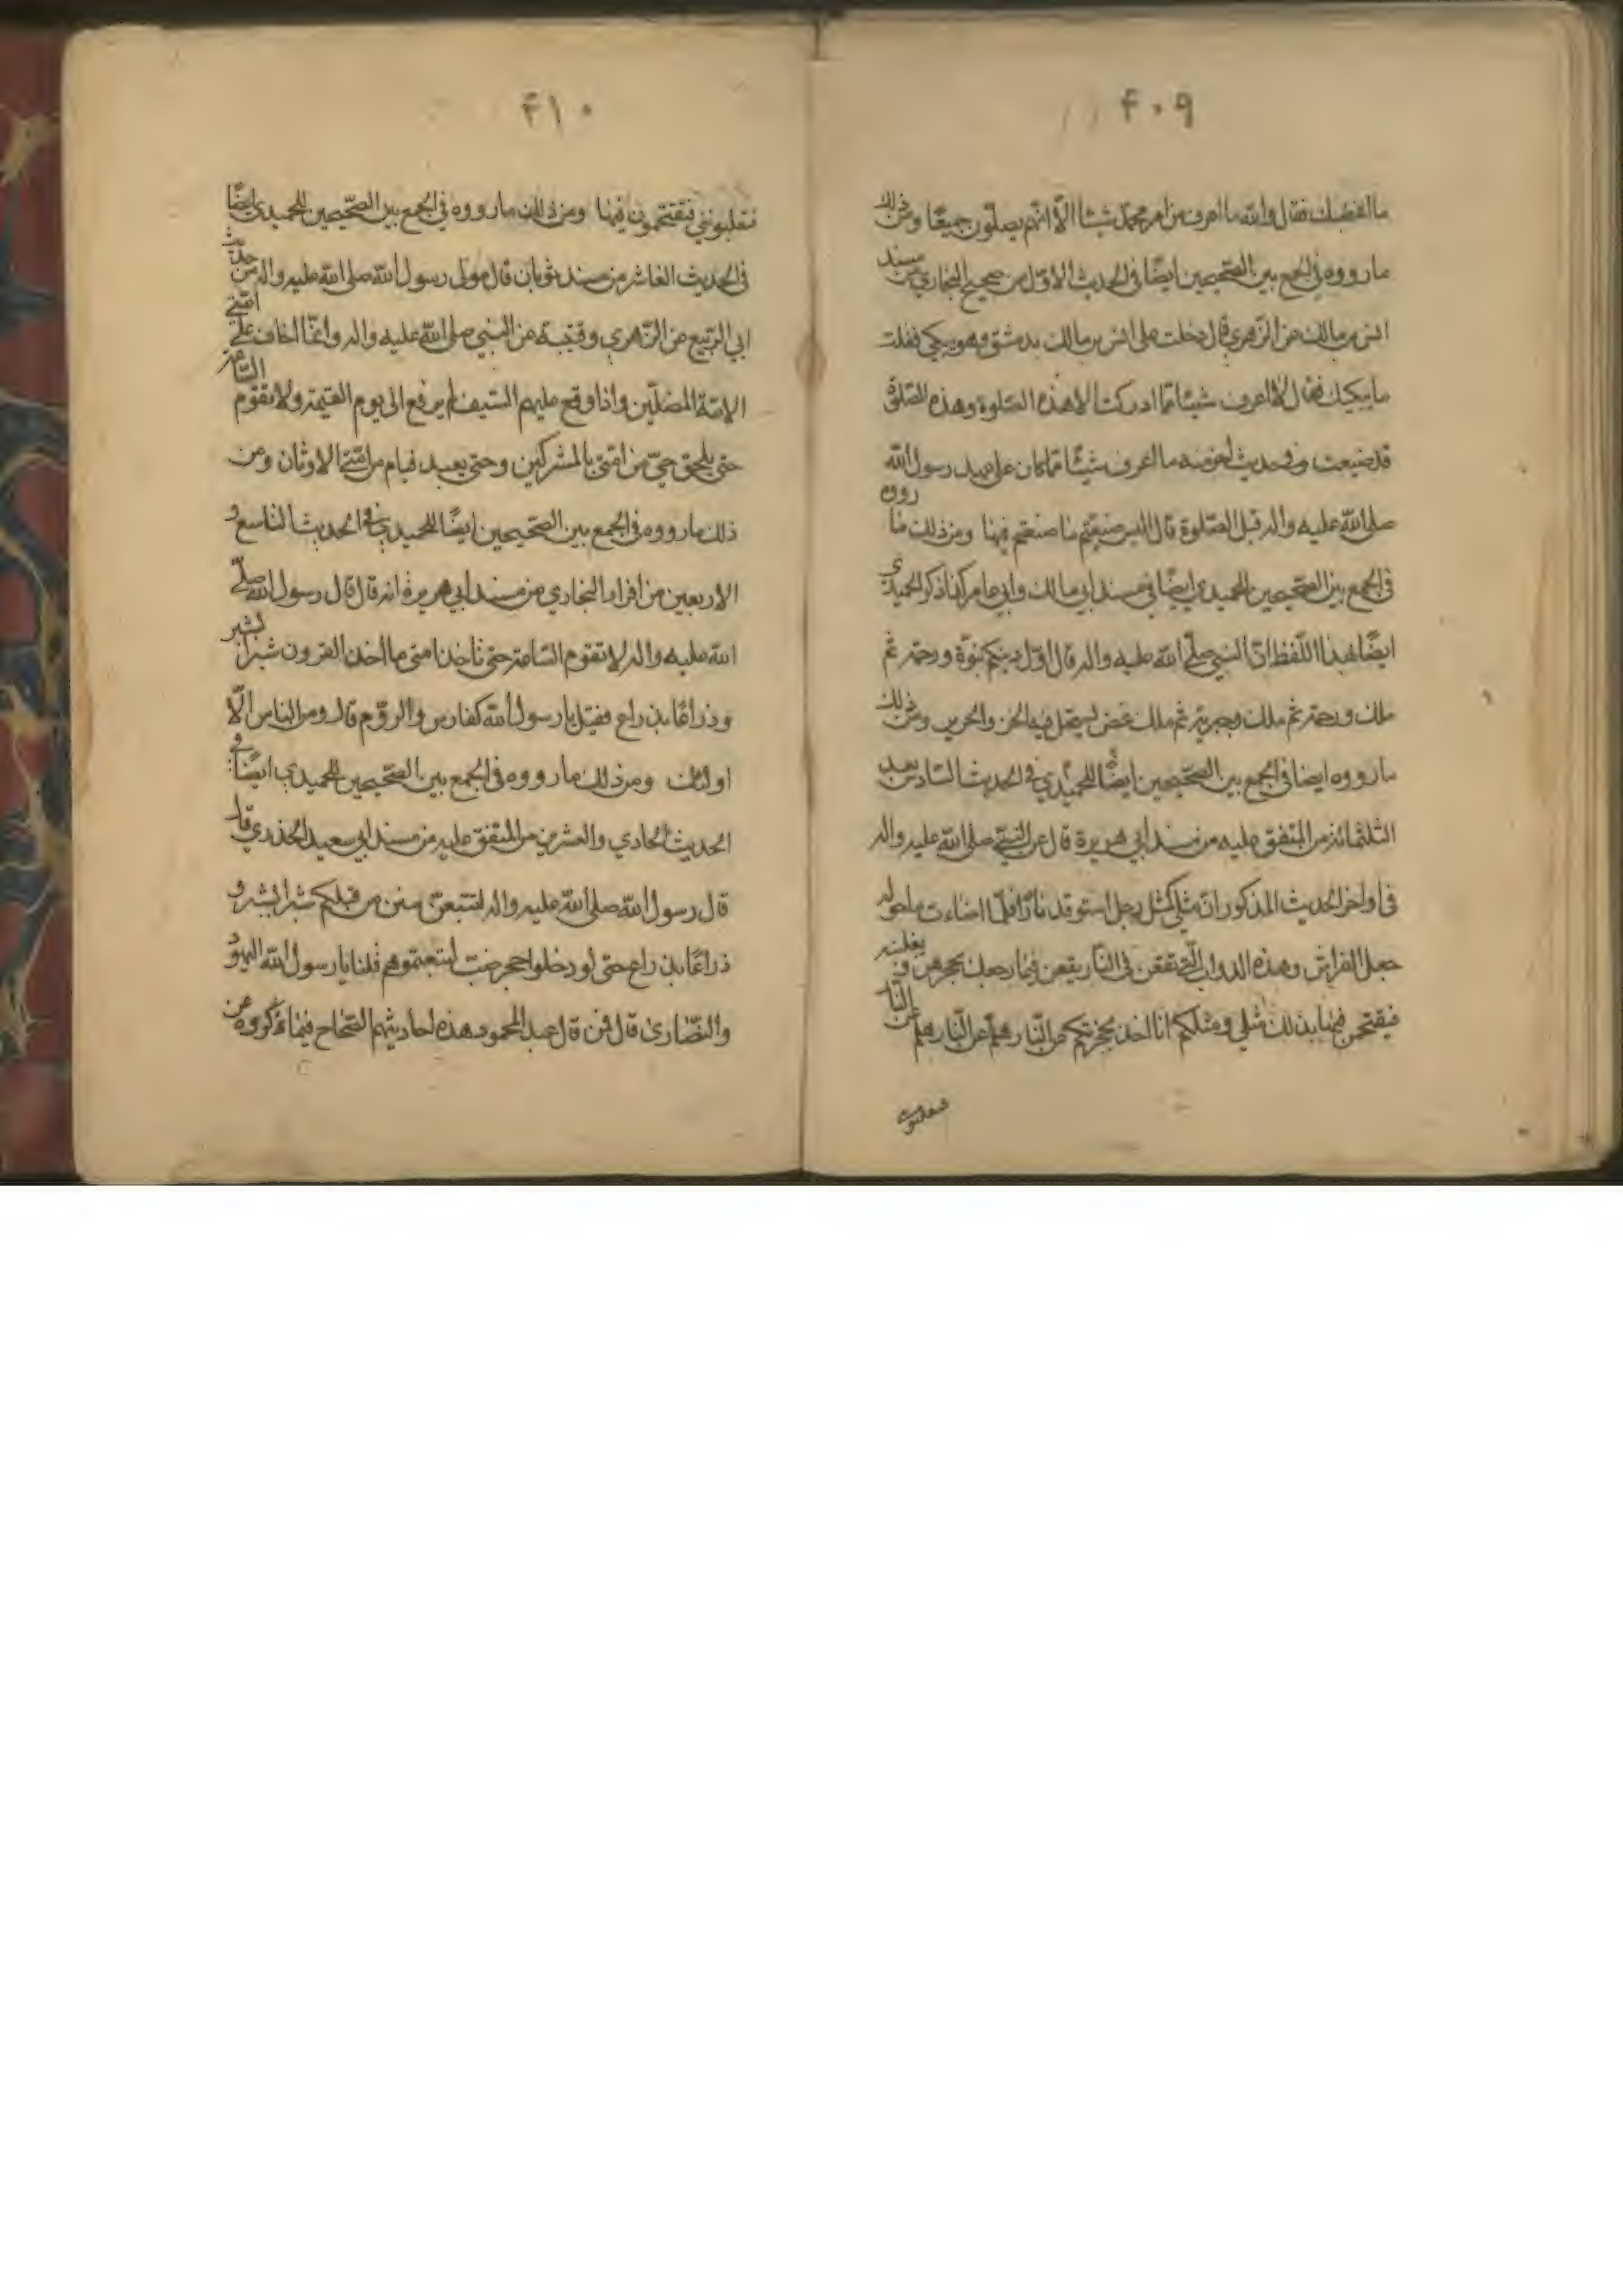 ۴۰۹
ما اغضبك فقال والله ما اعرف من امر محمد شيئا الّا انّهم يصلّون جميعًا ومن ذلك
ما رووه في الجمع بين الصّحيحين ايضًا في الحديث الاوّل من صحيح البخاري من مسند
انس بن مالك عن الزّهري قال دخلت على انس بن مالك بدمشق وهو يبكي فقلت
ما يبكيك فقال لا اعرف شيئا ممّا ادركت الا هذه الصّلوة وهذه الصّلوة
قد ضيعت وفي حديث اخر منه ما اعرف شيئًا ممّا كان على عهد رسول الله
صلى الله عليه واله قيل الصّلوة قال اليس صنعتم ما صنعتم فيها ومن ذلك ما رووه
في الجمع بين الصّحيحين للحميدي ايضًا في مسند ابي مالك وابي عامر كذا ذكر الحميدي
ايضًا هذا اللّفظ انّ النبي صلّى الله عليه واله قال اوّل دينكم نبوّة ورحمة ثم
ملك ورحمة ثم ملك وجبرية ثم ملك عض يستحل فيه الخز والحرير ومن ذلك
ما رووه ايضا في الجمع بين الصّحيحين ايضًا للحميدي في الحديث السّادس بعد
الثلثمائة من المتفق عليه من مسند ابي هريرة قال عن النّبي صلى الله عليه واله
في اواخر الحديث المذكور انّ مثلي كمثل رجل استوقد نارًا فلمّا اضاءت ما حوله
جعل الفراش وهذه الدواب الّتي تقعن في النّار يقعن فيها وجعل يحجزهن ويغلبنه
فيقتحمن فيها فذلك مثلي ومثلكم انا اخذ بحجزكم عن النّار هلمّ عن النّار هلمّ عن النّار
فتغلبوني
۴۱۰
فتغلبوني فتقتحمون فيها ومن ذلك ما رووه في الجمع بين الصّحيحين للحميدي ايضًا
في الحديث العاشر من مسند ثوبان قال مولى رسول الله صلى الله عليه واله من حديث
ابي الرّبيع عن الزّهري وقتيبة عن النبي صلى الله عليه واله وانّما اخاف على امّتي
الائمة المضلّين واذا وقع عليهم السّيف لم يرفع الى يوم القيمة ولا تقوم السّاعة
حتى يلحق حيّ من امّتي بالمشركين وحتى يعبد فيام من امّتي الاوثان ومن
ذلك ما رووه في الجمع بين الصّحيحين ايضًا للحميدي في الحديث التاسع و
الاربعين من افراد البخاري من مسند ابي هريرة انه قال قال رسول الله صلّى
الله عليه واله لا تقوم السّاعة حتى تاخذ امتي ما اخذ القرون شبرا بشبر
وذراعًا بذراع فقيل يا رسول الله كفارس والرّوم قال ومن الناس الّا
اولئك ومن ذلك ما رووه في الجمع بين الصّحيحين للحميدي ايضًا في
الحديث الحادي والعشرين من المتفق عليه من مسند ابي سعيد الخدري قال
قال رسول الله صلى الله عليه واله لتتبعنّ سنن من قبلكم شبرا بشبر و
ذراعًا بذراع حتى لو دخلوا حجر ضبّ لتبعتموهم قلنا يا رسول الله اليهود
والنّصارى قال فمن قال عبد المحمود هذه احاديثهم الصّحاح فيما ذكروه عن